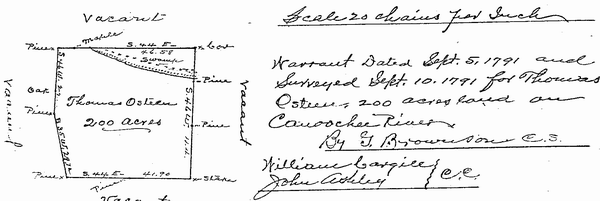 Vacant
Scale 20 chains per Inch
Pine
Maple
S. 44 E
Oak
46.58
Swamp
Pine
Warrant Dated Sept. 5, 1791 and
Surveyed Sept. 10, 1791 for Thomas
Osteen, 200 acres land on
Canoochee River
By T. Brownson C.S.
Oak
Thomas Osteen
Vacant
Vacant
Pine
200 acres
Pine
William Cargile
John Ashley
C.C.
Pine
S. 44 E
41.90
Stake
Pine
Vacant